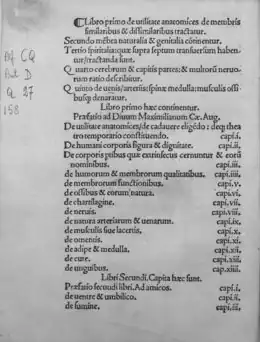 Bif CQ
But D
Q 27
158
CLibro primo de utilitate anatomices de membris
similaribus & dissimilaribus tractatur.
Secundo mēbra naturalia & genitalia cōtinentur.
Tertio spiritalia: quæ supra septum transuersum haben-
tur/tractanda sunt.
Quarto cerebrum & capitis partes: & multorū neruo-
rum ratio describitur.
Quinto de uenis/arteriis: spinæ medulla: musculis ossi
busq; denarratur.
Libro primo hæc continentur.
Præfatio ad Diuum Maximilianum Cæ. Aug.
De utilitate anatomices/de cadauere eligēdo: deq; thea
tro temporario constituendo. capi.i.
De humani corporis figura & dignitate. capi.ii.
De corporis ptibus quæ extrinsecus cernuntur & eorū
nominibus. capi.iii.
de humorum & membrorum qualitatibus. capi.iiii.
de membrorum functionibus. capi.v.
de ossibus & eorum natura. capi.vi.
de chartilagine. capi.vii.
de neruis. capi.viii.
de natura arteriarum & uenarum. capi.ix.
de musculis siue lacertis. capi.x.
de omentis. capi.xi.
de adipe & medulla. capi.xii.
de cute. capi.xiii.
de unguibus. cap.xiiii.
Libri Secundi. Capita hæc sunt.
Præfatio secundi libri. Ad amicos. capi.i.
de uentre & umbilico. capi.ii.
de sumine. capi.iii.